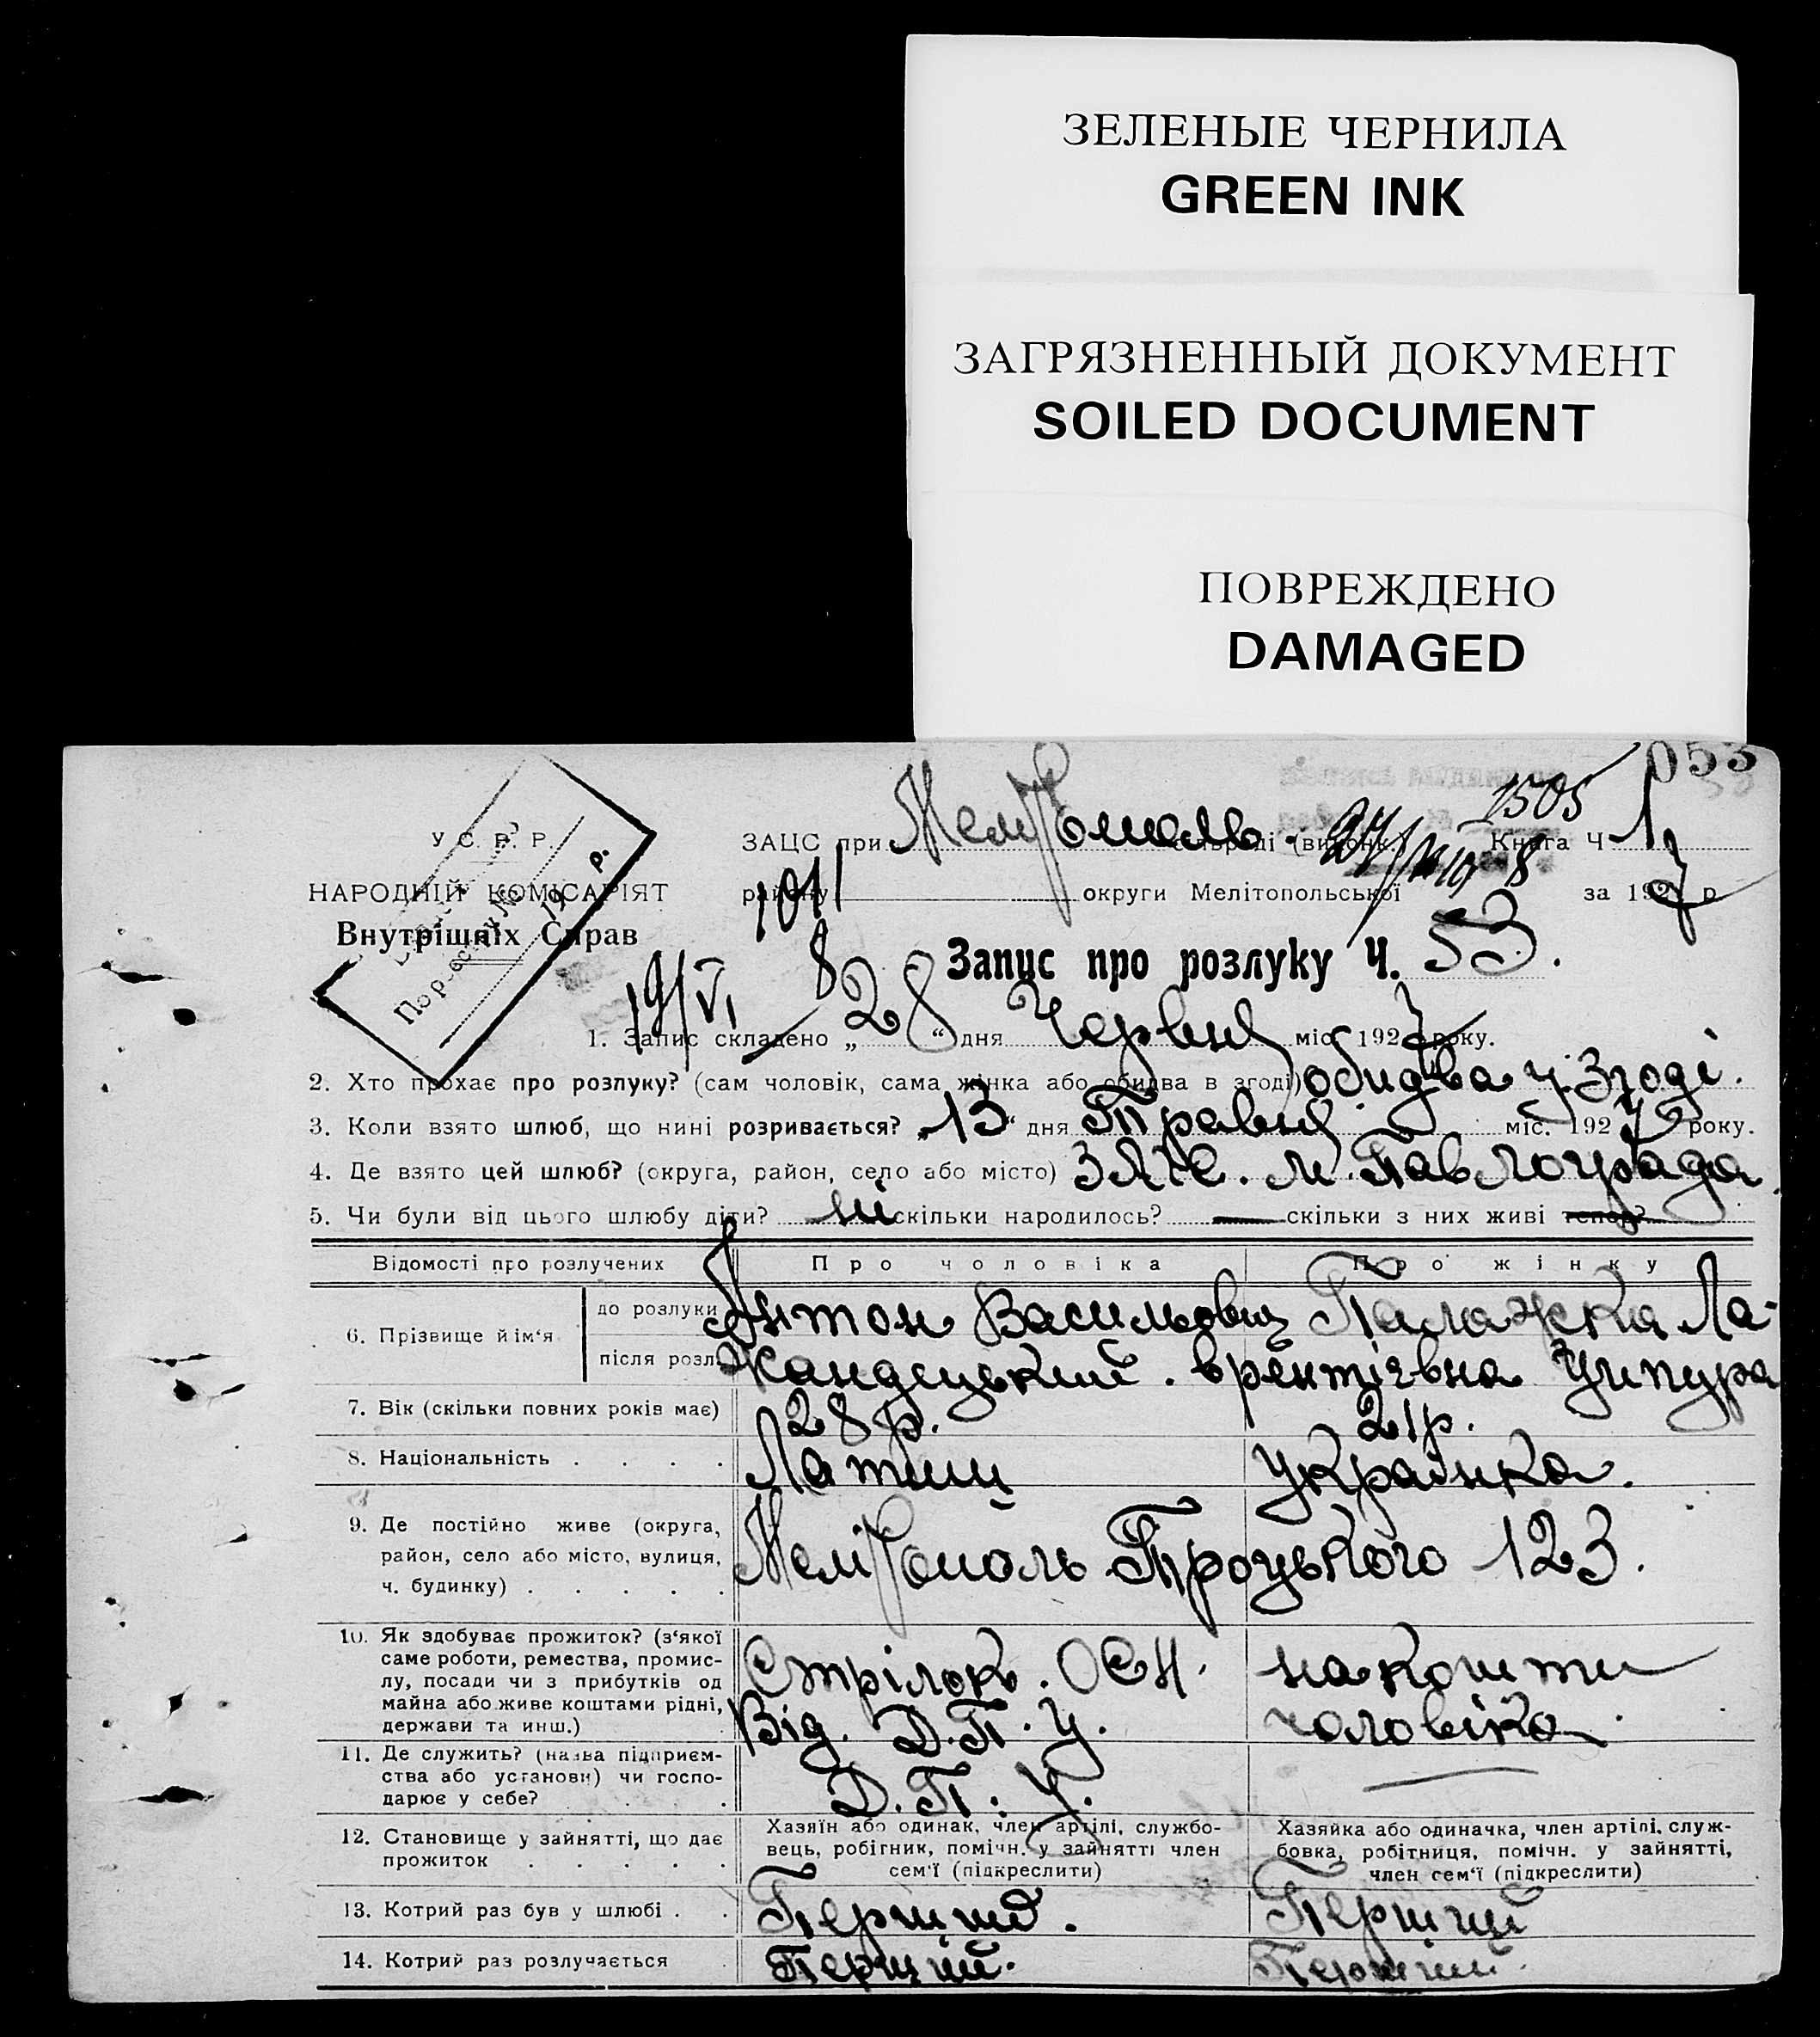 ЗЕЛЕНЫЕ ЧЕРНИЛА
GREEN INK
ЗАГРЯЗНЕННЫЙ ДОКУМЕНТ
SOILED DOCUMENT
ПОВРЕЖДЕНО
DAMAGED
053
1505
У. С. Р. Р.
НАРОДНІЙ КОМІСАРІЯТ
Внутрішніх Справ
ЗАЦС при Мелітополь Книга Ч 1
району округи Мелітопольської за 1927 р.
1011
Запис про розлуку Ч. 53.
19/VI 8
1. Запис складено „28“ дня Червня міс. 1927 року.
2. Хто прохає про розлуку? (сам чоловік, сама жінка або обидва в згоді) обидва у згоді.
3. Коли взято шлюб, що нині розривається? „13“ дня Травня міс. 1927 року.
4. Де взято цей шлюб? (округа, район, село або місто) ЗАГС. м. Павлограда
5. Чи були від цього шлюбу діти? ні скільки народилось? — скільки з них живі тепер?
Відомості про розлучених Про чоловіка Про жінку
6. Прізвище й ім‘я до розлуки Антон Васильович Палажка Ла-
після розл. врентіевна
7. Вік (скільки повних років має) 28 р. 21 р.
8. Національність . . . . Латиш Українка.
9. Де постійно живе (округа,
район, село або місто, вулиця,
ч. будинку) . . . . . Мелітополь Троцького 123.
10. Як здобуває прожиток? (з‘якої
саме роботи, ремества, промис-
лу, посади чи з прибутків од
майна або живе коштами рідні,
держави та инш.)
Стрілок. ОСН. на кошти
Від. Д.П.У. чоловіка.
11. Де служить? (назва підприєм-
ства або установи) чи госпо-
дарює у себе? Д.П.У. —
12. Становище у зайнятті, що дає
прожиток . . . . .
Хазяїн або одинак, член артілі, службо-
вець, робітник, помічн. у зайнятті член
сем‘ї (підкреслити)
Хазяйка або одиначка, член артілі, служ-
бовка, робітниця, помічн. у зайнятті,
член сем‘ї (підкреслити)
13. Котрий раз був у шлюбі . . Перший. Перший
14. Котрий раз розлучається . Перший. Перший.